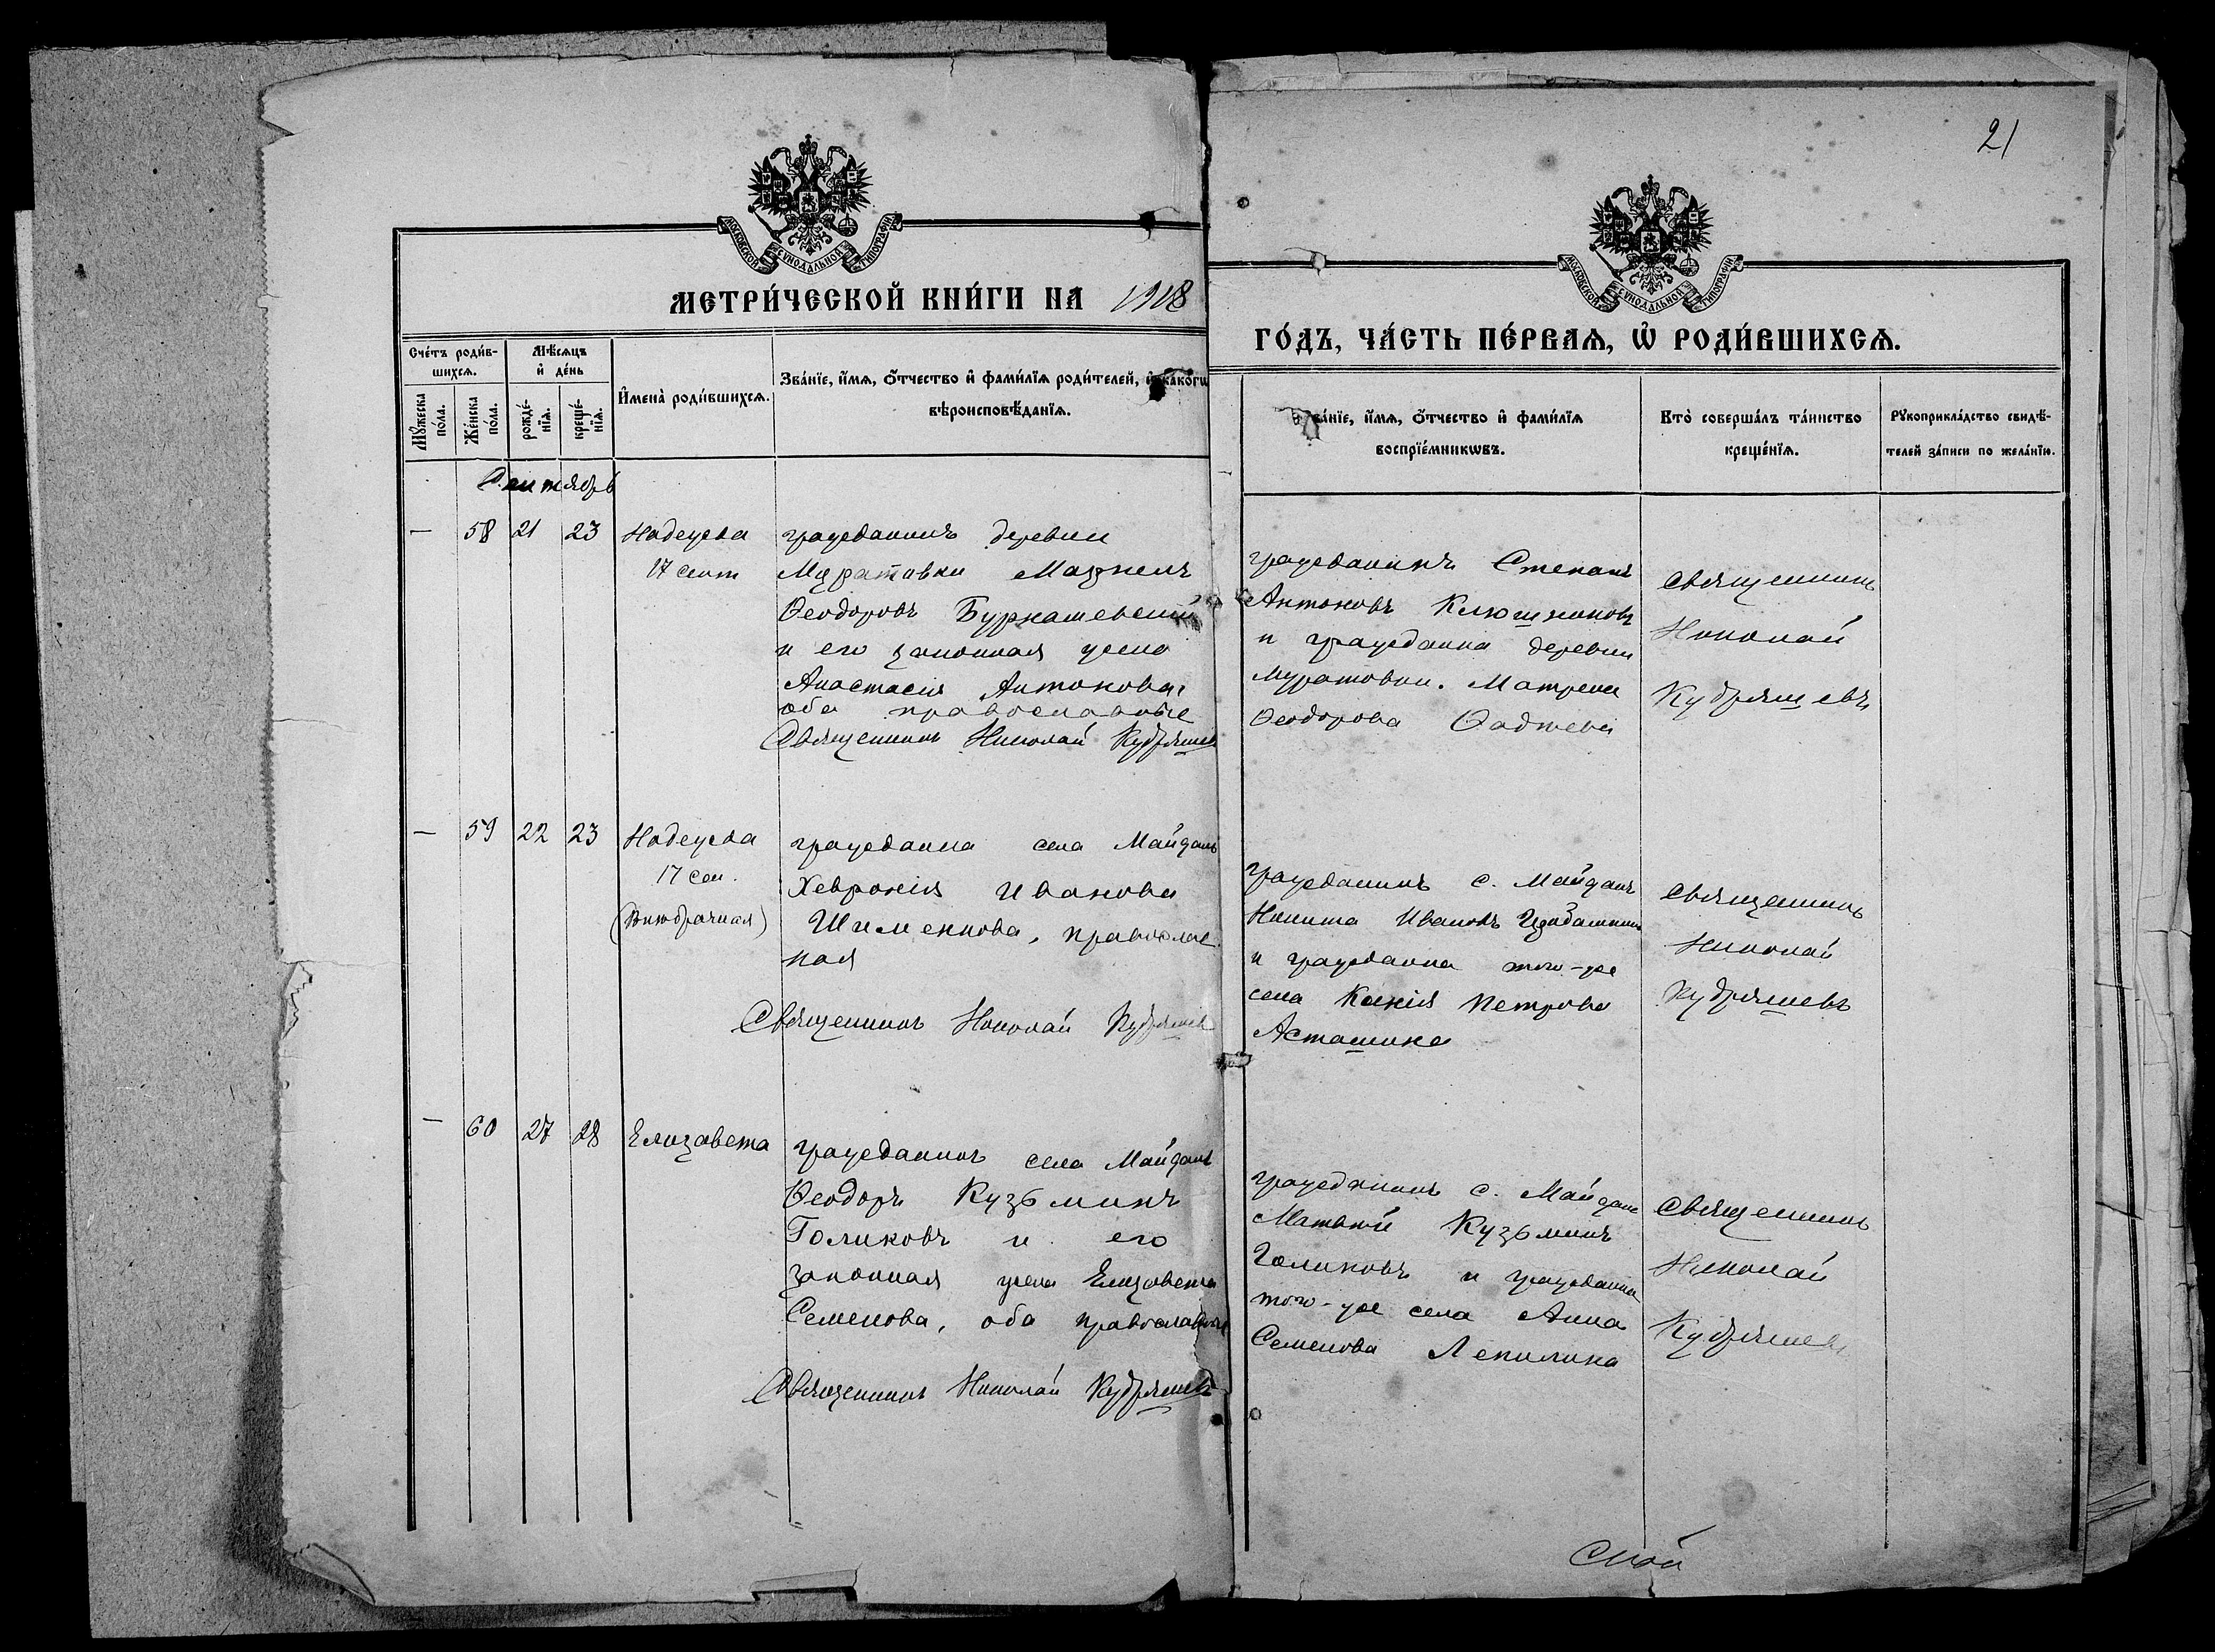 21
МОСКОВСКОЙ СѴНОДАЛЬНОЙ ТИПОГРАФІИ
МОСКОВСКОЙ СѴНОДАЛЬНОЙ ТИПОГРАФІИ
МЕТРИ́ЧЕСКОЙ КНИ́ГИ НА 1918
ГО́ДЪ, ЧА́СТЬ ПЕ́РВАЯ, Ѡ҆ РОДИ́ВШИХСЯ.
Сче́тъ роди́в-
шихся.
Мѣ́сяцъ
и҆ де́нь
Мꙋ́жеска
по́ла.
Же́нска
по́ла.
рожде́-
нїя.
креще́-
нїя.
И҆мена̀ роди́вшихся.
Зва́нїе, и҆́мя, ѻ҆́тчество и҆ фами́лїя роди́телей, и҆ како́гѡ
вѣроисповѣ́данїя.
Зва́нїе, и҆́мя, ѻ҆́тчество и҆ фами́лїя
воспрїе́мникѡвъ.
Кто̀ соверша́лъ та́инство
креще́нїя.
Рꙋкоприкла́дство свидѣ́-
телей за́писи по жела́нїю.
Сентябрь
— 58 21 23 Надежда
17 сент
гражданинъ деревни
Муратовки Маркелъ
Ѳеодоровъ Буркашевскій
и его законная жена
Анастасія Антонова,
оба православные
Священникъ Николай Кудряшевъ
гражданинъ Степанъ
Антоновъ Клюшниковъ
и гражданка деревни
Муратовки. Матрена
Ѳеодорова
священникъ
Николай
Кудряшевъ
— 59 22 23 Надежда
17 сен.
(Внебрачная)
гражданка села Майданъ
Хевронія Иванова
Шименкова, православ
ная
Священникъ Николай Кудряшевъ
гражданинъ с. Майданъ
Никита Ивановъ
и гражданка того-же
села Ксенія Петрова
Асташина
священникъ
Николай
Кудряшевъ
— 60 27 28 Елизавета
гражданинъ села Майданъ
Ѳеодоръ Кузьминъ
Голиковъ и его
законная жена Елизавета
Семенова, оба православные
Священникъ Николай Кудряшевъ
гражданинъ с. Майданъ
Матвѣй Кузьминъ
Голиковъ и гражданка
того-же села Анна
Семенова Лепилина
священникъ
Николай
Кудряшевъ